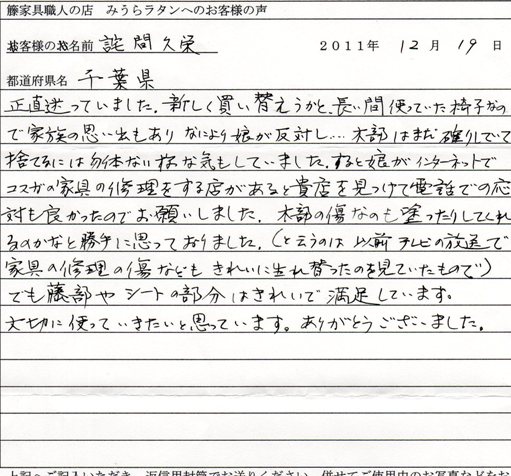 籐家具職人の店　みうらラタンへのお客様の声
お客様のお名前　詫間久栄　2011年 12月 19日
都道府県名　千葉県
正直迷っていました。新しく買い替えうかと、長い間使っていた椅子なの
で家族の思い出もあり なにより娘が反対し… 木部はまだ確りしていて
捨てるには勿体ない様な気もしていました。すると娘がインターネットで
コスガの家具の修理をする店があると貴店を見つけて電話での応
対も良かったのでお願いしました。木部の傷なのも塗ったりしてくれ
るのかなと勝手に思っておりました。(と云うのは 以前テレビの放送で
家具の修理の傷なども きれいに生れ替ったのを見ていたもので)
でも藤部や シートの部分はきれいで満足しています。
大切に使っていきたいと思っています。ありがとうございました。
上記へご記入いただき、返信用封筒でお送りください。併せてご使用中のお写真などをお